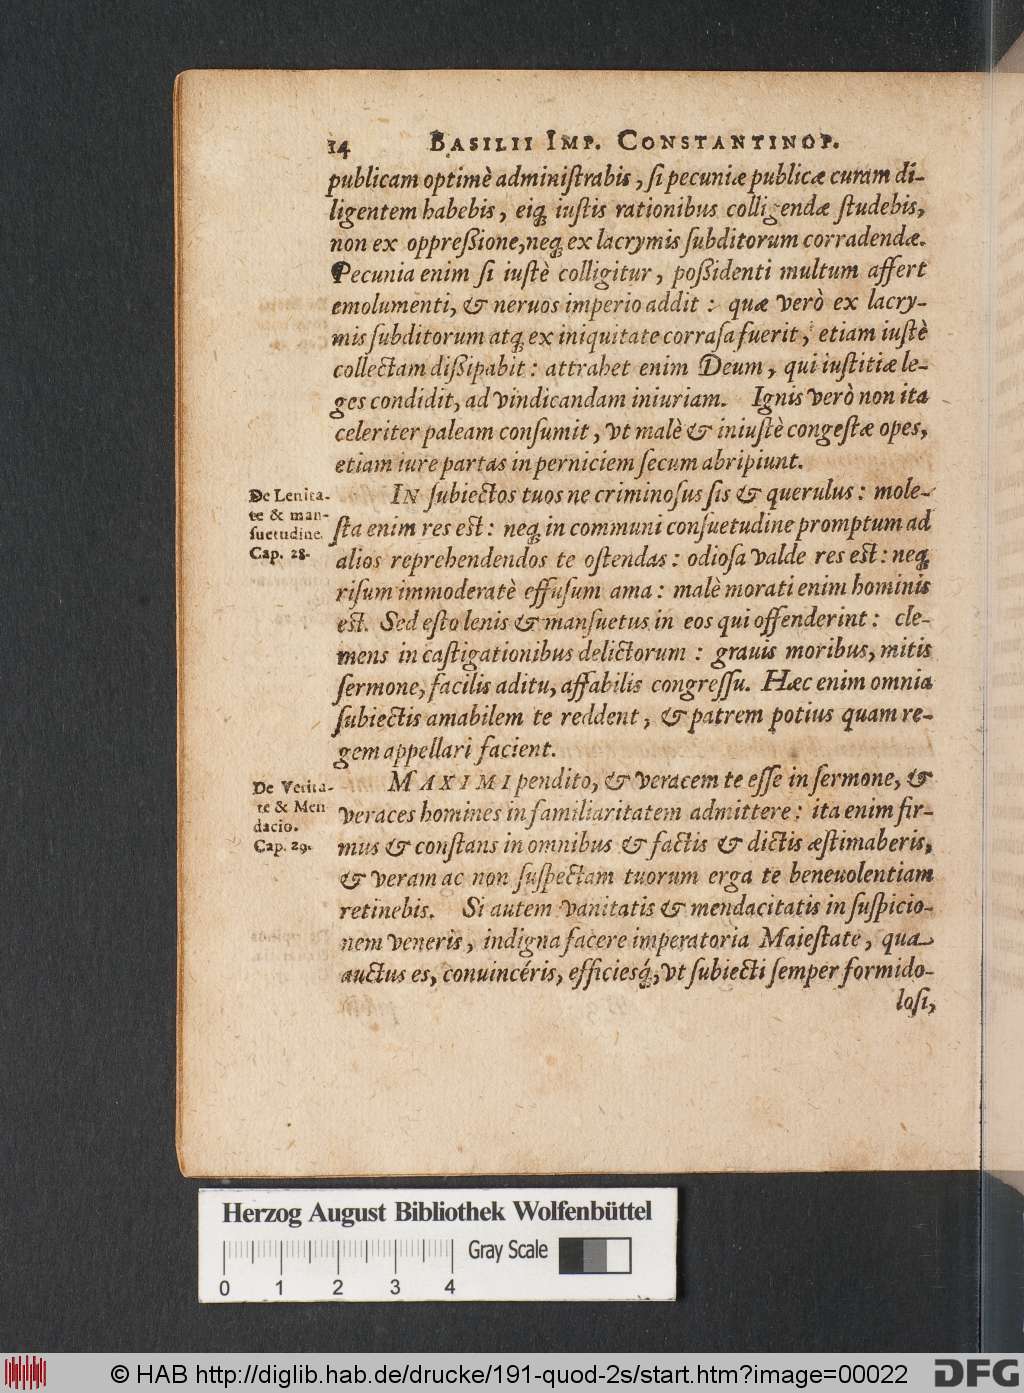 14 BASILII IMP. CONSTANTINOP.
publicam optimè adminiſtrabis, ſi pecuniæ publicæ curam di-
ligentem habebis, eiq; iuſtis rationibus colligendæ ſtudebis,
non ex oppreßione, neq; ex lacrymis ſubditorum corradendæ.
Pecunia enim ſi iuſtè colligitur, poßidenti multum affert
emolumenti, & neruos imperio addit: quæ verò ex lacry-
mis ſubditorum atq; ex iniquitate corraſa fuerit, etiam iuſtè
collectam dißipabit: attrahet enim Deum, qui iuſtitiæ le-
ges condidit, ad vindicandam iniuriam. Ignis verò non ita
celeriter paleam conſumit, vt malè & iniuſtè congeſtæ opes,
etiam iure partas in perniciem ſecum abripiunt.
De Lenita-
te & man-
ſuetudine.
Cap. 28.
IN ſubiectos tuos ne criminoſus ſis & querulus: mole-
ſta enim res est: neq; in communi conſuetudine promptum ad
alios reprehendendos te oſtendas: odioſa valde res est: neq;
riſum immoderatè effuſum ama: malè morati enim hominis
est. Sed eſto lenis & manſuetus in eos qui offenderint: cle-
mens in caſtigationibus delictorum: grauis moribus, mitis
ſermone, facilis aditu, affabilis congreſſu. Hæc enim omnia
ſubiectis amabilem te reddent, & patrem potius quam re-
gem appellari facient.
De Verita-
te & Men
dacio.
Cap. 29.
MAXIMI pendito, & veracem te eſſe in ſermone, &
veraces homines in familiaritatem admittere: ita enim fir-
mus & conſtans in omnibus & factis & dictis æſtimaberis,
& veram ac non ſuſpectam tuorum erga te beneuolentiam
retinebis. Si autem vanitatis & mendacitatis in ſuſpicio-
nem veneris, indigna facere imperatoria Maieſtate, qua
auctus es, conuincéris, efficiesq́;, vt ſubiecti ſemper formido-
loſi,
Herzog August Bibliothek Wolfenbüttel
Gray Scale
0 1 2 3 4
© HAB http://diglib.hab.de/drucke/191-quod-2s/start.htm?image=00022
DFG